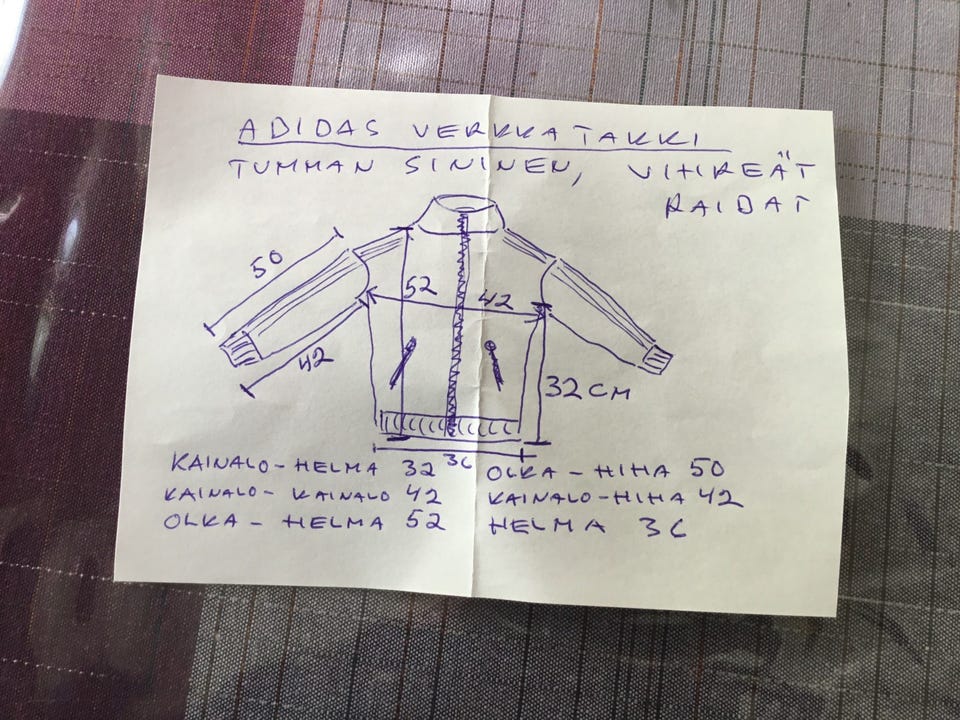 ADIDAS VERKKATAKKI
TUMMAN SININEN, VIHREÄT
RAIDAT
50
52
42
42
32 CM
36
KAINALO-HELMA 32
KAINALO-KAINALO 42
OLKA-HELMA 52
OLKA-HIHA 50
KAINALO-HIHA 42
HELMA 36